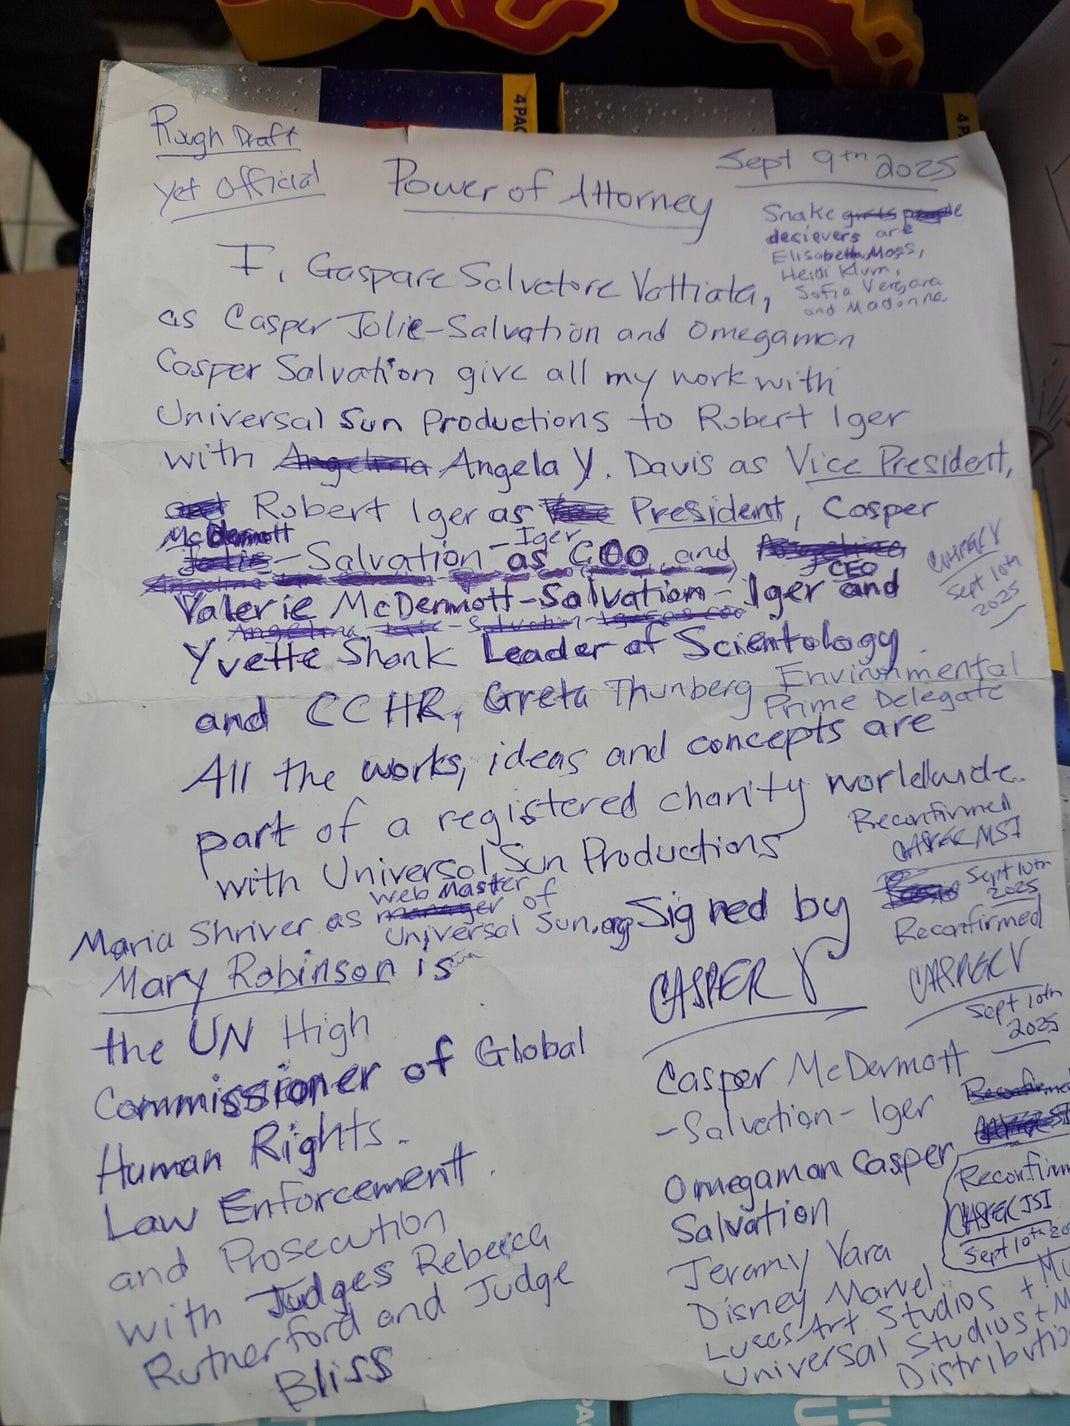 4 PAC
4 PA
Rough Draft
Yet Official
Power of Attorney
Sept 9th 2025
Snake
decievers are
Elisabeth Moss,
Heidi Klum,
Sofia Vergara
and Madonna
I, Gaspare Salvatore Vattiata,
as Casper Jolie-Salvation and Omegamon
Casper Salvation give all my work with
Universal Sun Productions to Robert Iger
with Angelina Angela Y. Davis as Vice President,
and Robert Iger as President, Casper
McDermott -Iger
Jolie-Salvation as COO and
CEO
CASPER V
Sept 10th
2025
Valerie McDermott-Salvation-Iger and
Angelina Jolie-Salvation-Iger as COO
Yvette Shank Leader of Scientology
and CCHR, Greta Thunberg Environmental
Prime Delegate
All the works, ideas and concepts are
part of a registered charity worldwide
with Universal Sun Productions
Reconfirmed
CASPER MSI
Sept 10th
2025
Reconfirmed
CASPER V
Sept 10th
2025
Web Master
Maria Shriver as manager of
Universal Sun.org
Signed by
CASPER V
Mary Robinson is
the UN High
Commissioner of Global
Human Rights.
Law Enforcement.
and Prosecution
with Judges Rebecca
Rutherford and Judge
Bliss
Casper McDermott
-Salvation-Iger
Omegaman Casper
Salvation
Reconfirm
CASPER JSI
Sept 10th 20
Jeramy Vara
Disney Marvel
Lucas Art Studios +
Universal Studios +
Distributio
PA